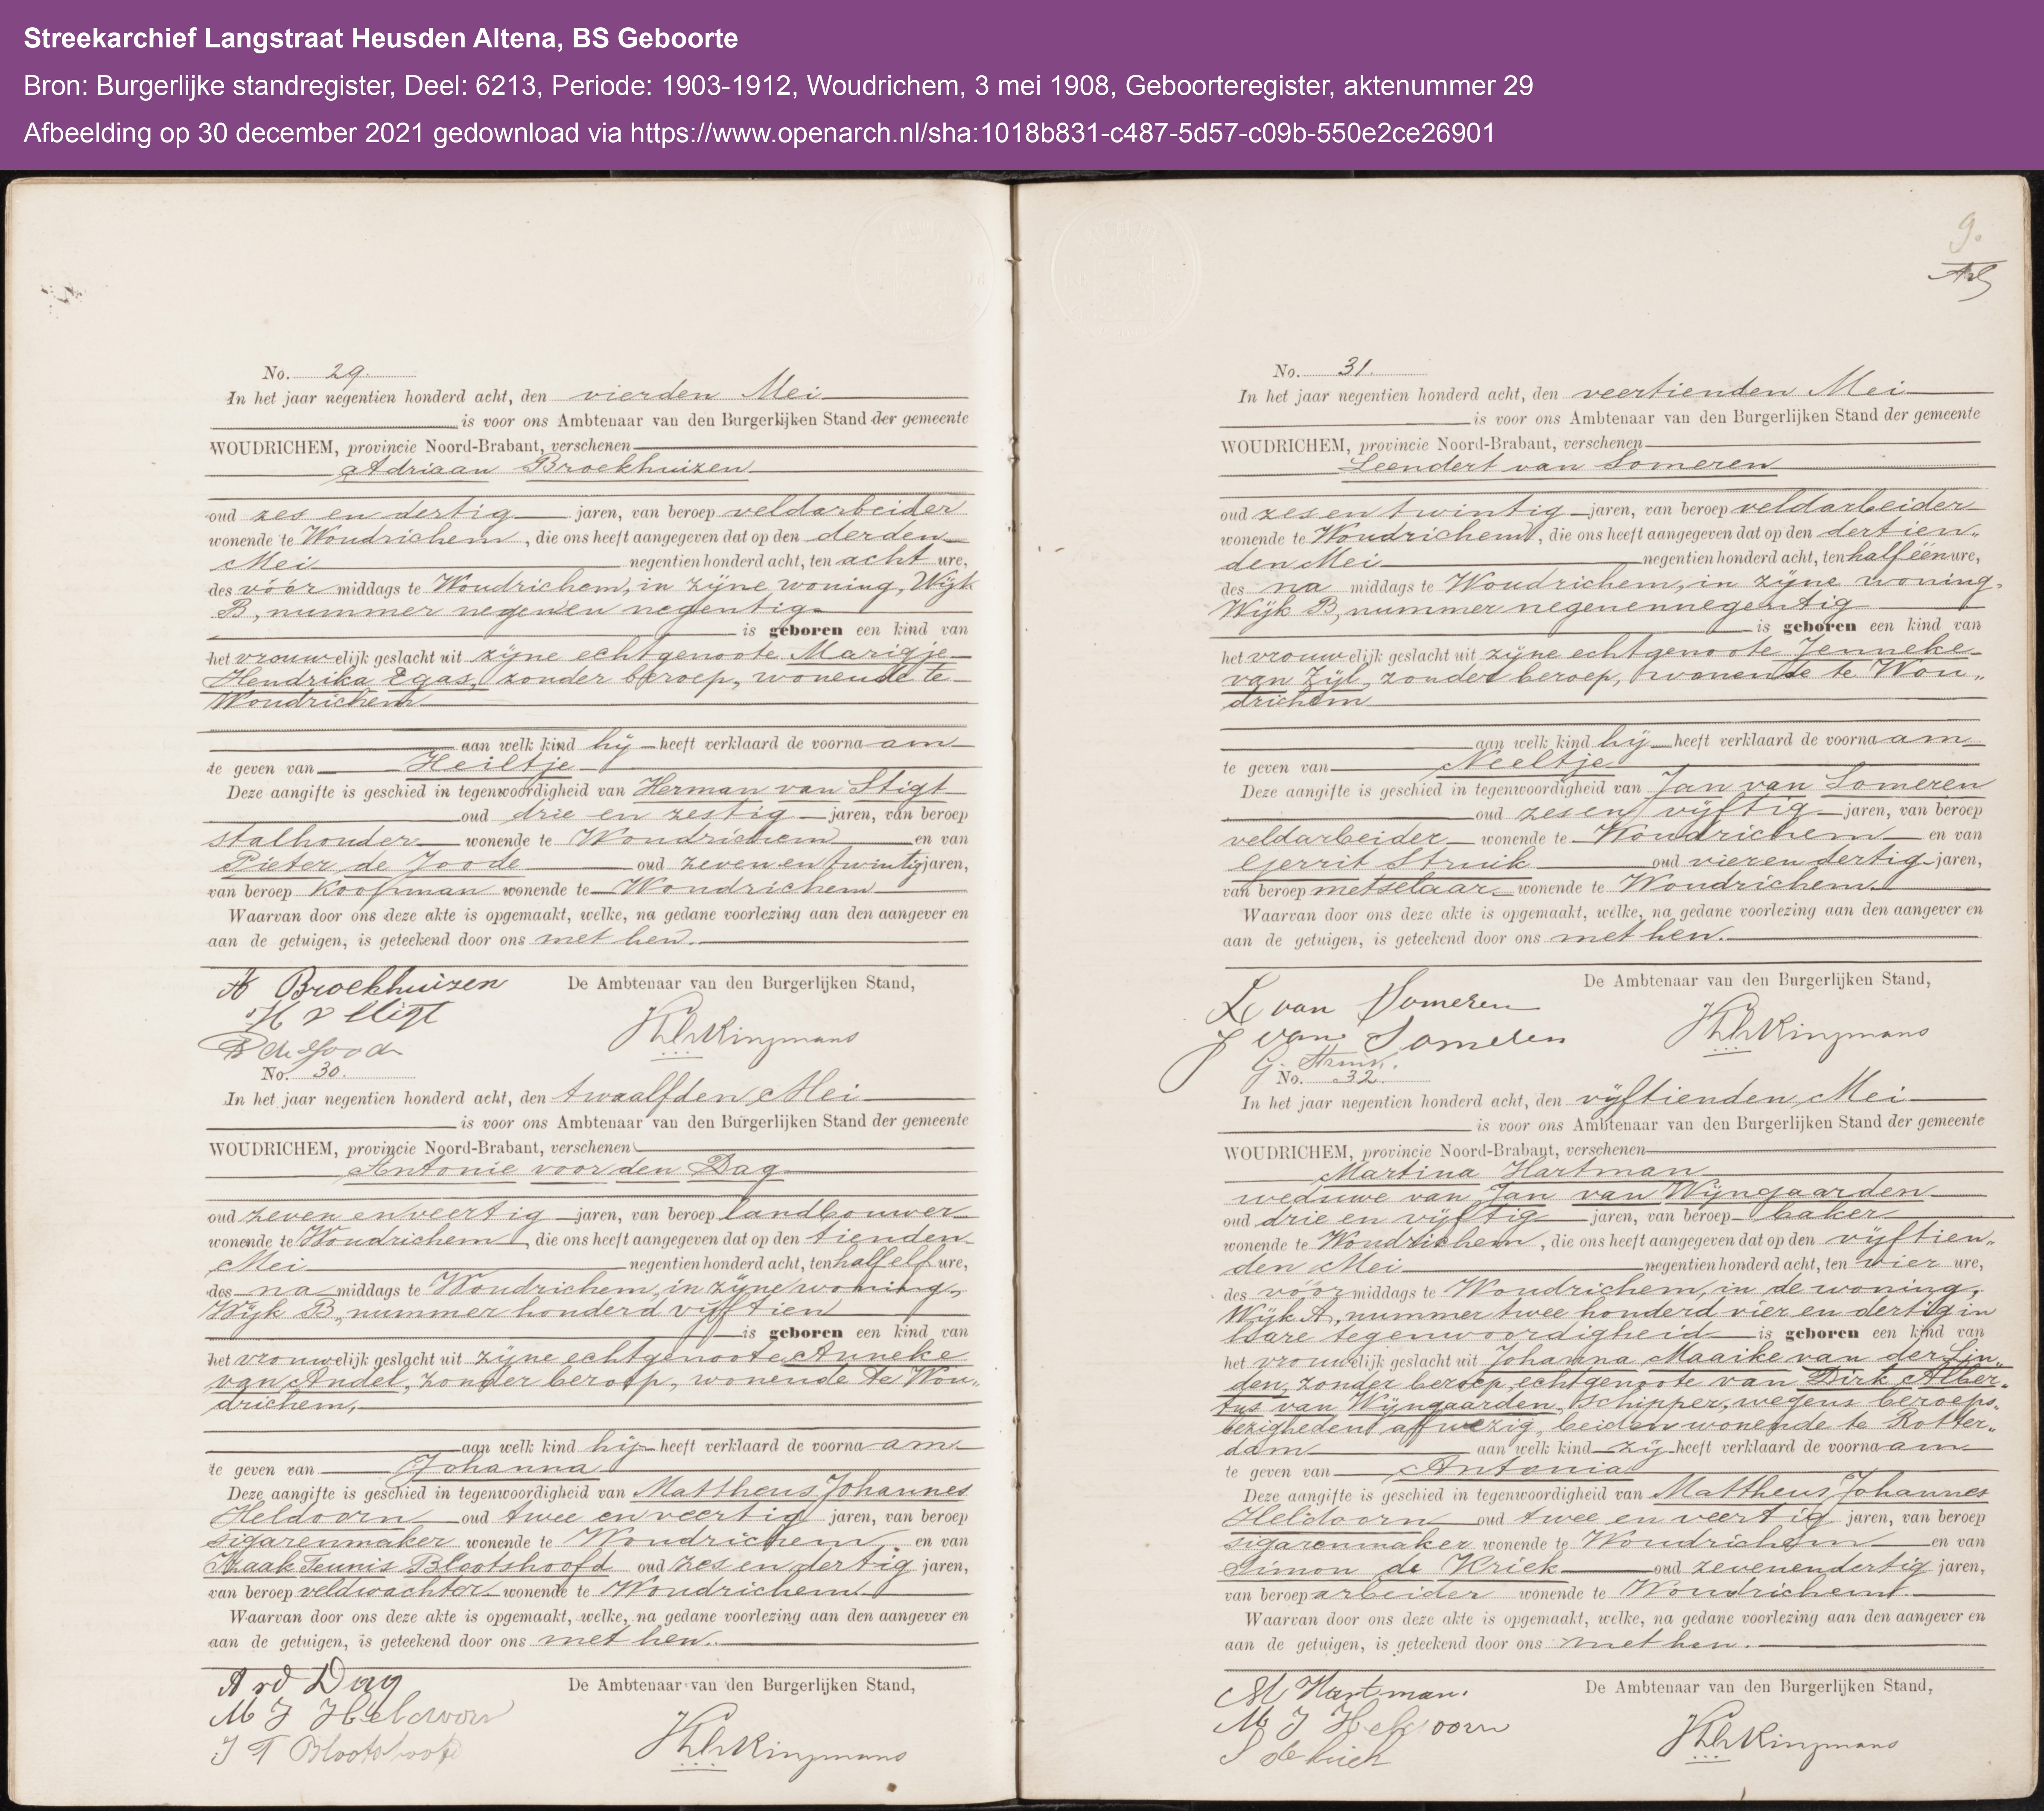 Streekarchief Langstraat Heusden Altena, BS Geboorte
Bron: Burgerlijke standregister, Deel: 6213, Periode: 1903-1912, Woudrichem, 3 mei 1908, Geboorteregister, aktenummer 29
Afbeelding op 30 december 2021 gedownload via https://www.openarch.nl/sha:1018b831-c487-5d57-c09b-550e2ce26901
No. 29.
In het jaar negentien honderd acht, den vierden Mei
is voor ons Ambtenaar van den Burgerlijken Stand der gemeente
WOUDRICHEM, provincie Noord-Brabant, verschenen
Adriaan Broekhuizen
oud zes en dertig jaren, van beroep veldarbeider
wonende te Woudrichem, die ons heeft aangegeven dat op den derden
Mei negentien honderd acht, ten acht ure,
des vóór middags te Woudrichem, in zijne woning, Wijk
B, nummer negen en negentig
is geboren een kind van
het vrouwelijk geslacht uit zijne echtgenoote Marigje
Hendrika Egas, zonder beroep, wonende te
Woudrichem
aan welk kind hij heeft verklaard de voornaam
te geven van Heiltje
Deze aangifte is geschied in tegenwoordigheid van Herman van Stigt
oud drie en zestig jaren, van beroep
stalhouder wonende te Woudrichem en van
Pieter de Joode oud zeven en twintig jaren,
van beroep Koopman wonende te Woudrichem
Waarvan door ons deze akte is opgemaakt, welke, na gedane voorlezing aan den aangever en
aan de getuigen, is geteekend door ons met hen.
A Broekhuizen De Ambtenaar van den Burgerlijken Stand,
H v Stigt
P de Joode
No. 30.
In het jaar negentien honderd acht, den twaalfden Mei
is voor ons Ambtenaar van den Burgerlijken Stand der gemeente
WOUDRICHEM, provincie Noord-Brabant, verschenen
Antonie voor den Dag
oud zeven en veertig jaren, van beroep landbouwer
wonende te Woudrichem, die ons heeft aangegeven dat op den tienden
Mei negentien honderd acht, ten half elf ure,
des na middags te Woudrichem, in zijne woning,
Wijk B, nummer honderd vijftien
is geboren een kind van
het vrouwelijk geslacht uit zijne echtgenoote Anneke
van Andel, zonder beroep, wonende te Wou„
drichem,
aan welk kind hij heeft verklaard de voornaam
te geven van Johanna
Deze aangifte is geschied in tegenwoordigheid van Mattheus Johannes
Heldoorn oud twee en veertig jaren, van beroep
sigarenmaker wonende te Woudrichem en van
Izaak Teunis Blootshoofd oud zes en dertig jaren,
van beroep veldwachter wonende te Woudrichem
Waarvan door ons deze akte is opgemaakt, welke, na gedane voorlezing aan den aangever en
aan de getuigen, is geteekend door ons met hen.
A vd Dag De Ambtenaar van den Burgerlijken Stand,
M J Heldoorn
J T Blootshoofd
9.
No. 31.
In het jaar negentien honderd acht, den veertienden Mei
is voor ons Ambtenaar van den Burgerlijken Stand der gemeente
WOUDRICHEM, provincie Noord-Brabant, verschenen
Leendert van Someren
oud zes en twintig jaren, van beroep veldarbeider
wonende te Woudrichem, die ons heeft aangegeven dat op den dertien„
den Mei negentien honderd acht, ten half één ure,
des na middags te Woudrichem, in zijne woning,
Wijk B, nummer negenennegentig
is geboren een kind van
het vrouwelijk geslacht uit zijne echtgenoote Jenneke
van Zijl, zonder beroep, wonende te Wou„
drichem
aan welk kind hij heeft verklaard de voornaam
te geven van Neeltje
Deze aangifte is geschied in tegenwoordigheid van Jan van Someren
oud zes en vijftig jaren, van beroep
veldarbeider wonende te Woudrichem en van
Gerrit Struik oud vier en dertig jaren,
van beroep metselaar wonende te Woudrichem.
Waarvan door ons deze akte is opgemaakt, welke, na gedane voorlezing aan den aangever en
aan de getuigen, is geteekend door ons met hen.
L van Someren De Ambtenaar van den Burgerlijken Stand,
J van Someren
G. Struik.
No. 32.
In het jaar negentien honderd acht, den vijftienden Mei
is voor ons Ambtenaar van den Burgerlijken Stand der gemeente
WOUDRICHEM, provincie Noord-Brabant, verschenen
Martina Hartman
weduwe van Jan van Wijngaarden
oud drie en vijftig jaren, van beroep baker
wonende te Woudrichem, die ons heeft aangegeven dat op den vijftien„
den Mei negentien honderd acht, ten vier ure,
des vóór middags te Woudrichem, in de woning,
Wijk A, nummer twee honderd vier en dertig in
hare tegenwoordigheid is geboren een kind van
het vrouwelijk geslacht uit Johanna Maaike van der Lin„
den, zonder beroep, echtgenoote van Dirk Alber„
tus van Wijngaarden, schipper, wegens beroeps„
bezigheden afwezig, beiden wonende te Rotter„
dam aan welk kind zij heeft verklaard de voornaam
te geven van Antonia
Deze aangifte is geschied in tegenwoordigheid van Mattheus Johannes
Heldoorn oud twee en veertig jaren, van beroep
sigarenmaker wonende te Woudrichem en van
Simon de Kriek oud zevenendertig jaren,
van beroep arbeider wonende te Woudrichem.
Waarvan door ons deze akte is opgemaakt, welke, na gedane voorlezing aan den aangever en
aan de getuigen, is geteekend door ons met hen.
M Hartman. De Ambtenaar van den Burgerlijken Stand,
M J Heldoorn
S de kriek